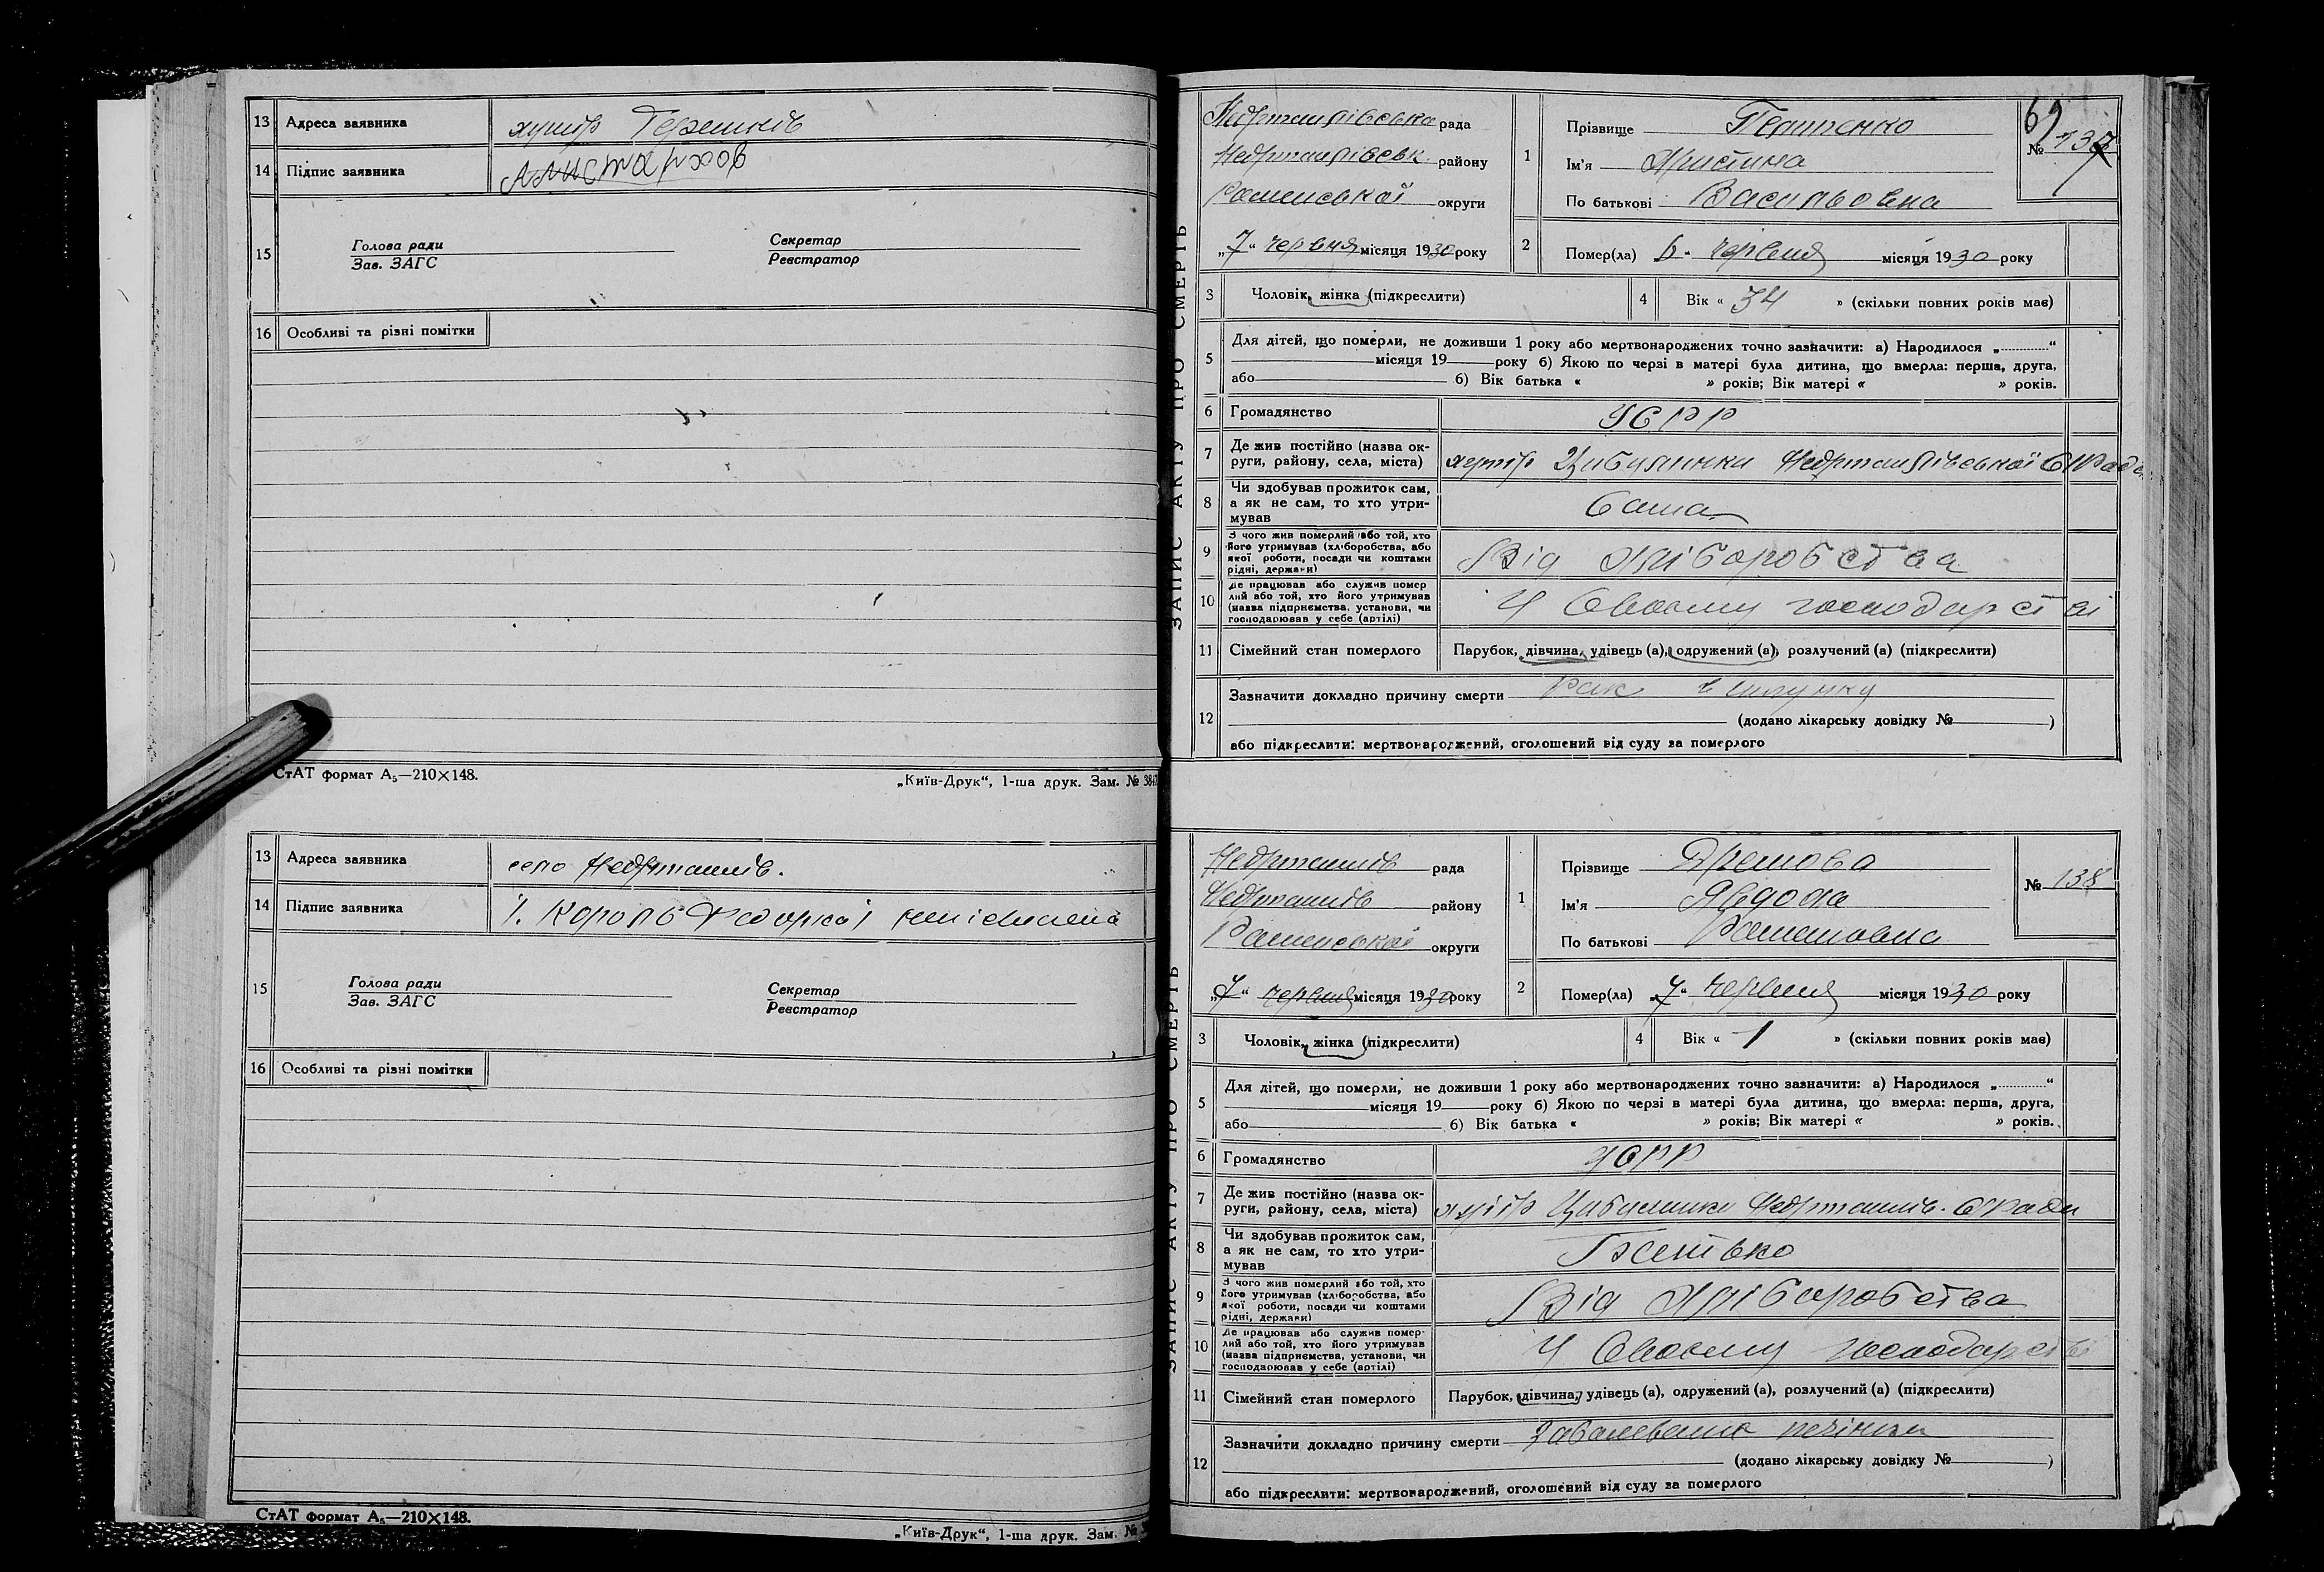 13 Адреса заявника хутір
14 Підпис заявника
15 Голова ради Секретар
Зав. ЗАГС Реєстратор
16 Особливі та різні помітки
СтАТ формат А₅—210×148. „Київ-Друк“, 1-ша друк. Зам. № 384
13 Адреса заявника село Недригайлів.
14 Підпис заявника Король
15 Голова ради Секретар
Зав. ЗАГС Реєстратор
16 Особливі та різні помітки
СтАТ формат А₅—210×148.
„Київ-Друк“, 1-ша друк. Зам. №
ЗАПИС АКТУ ПРО СМЕРТЬ
69
Недригайлівська рада
Недригайлівськ. району
Роменської округи
„7“ червня місяця 1930 року
1 Прізвище
Ім'я Христина
По батькові Васильовна
№ 137
2 Помер(ла) 6 червня місяця 1930 року
3 Чоловік, жінка (підкреслити)
4 Вік « 34 » (скільки повних років мав)
5 Для дітей, що померли, не доживши 1 року або мертвонароджених точно зазначити: а) Народилося „..........“
місяця 19 року б) Якою по черзі в матері була дитина, що вмерла: перша, друга,
або б) Вік батька « » років; Вік матері « » років.
6 Громадянство УСРР
7 Де жив постійно (назва ок-
руги, району, села, міста) хутір Недригайлівської С/Ради
8 Чи здобував прожиток сам,
а як не сам, то хто утри-
мував Сама
9 З чого жив померлий або той, хто
його утримував (хліборобства, або
якої роботи, посади чи коштами
рідні, держави) Від хліборобства
10 Де працював або служив помер
лий або той, хто його утримував
(назва підприємства, установи, чи
господарював у себе (артілі) У Своєму господарстві
11 Сімейний стан померлого Парубок, дівчина, удівець (а), одружений (а), розлучений (а) (підкреслити)
12 Зазначити докладно причину смерти Рак шлунку
(додано лікарську довідку № )
або підкреслити: мертвонароджений, оголошений від суду за померлого
ЗАПИС АКТУ ПРО СМЕРТЬ
Недригайлів рада
Недригайлів району
Роменської округи
„7“ червня місяця 1930 року
1 Прізвище
Ім'я Явдоха
По батькові Романовна
№ 138
2 Помер(ла) „7“ червня місяця 1930 року
3 Чоловік, жінка (підкреслити)
4 Вік « 1 » (скільки повних років мав)
5 Для дітей, що померли, не доживши 1 року або мертвонароджених точно зазначити: а) Народилося „..........“
місяця 19 року б) Якою по черзі в матері була дитина, що вмерла: перша, друга,
або б) Вік батька « » років; Вік матері « » років.
6 Громадянство УСРР
7 Де жив постійно (назва ок-
руги, району, села, міста) хутір Недригайлів. С/Ради
8 Чи здобував прожиток сам,
а як не сам, то хто утри-
мував Батько
9 З чого жив померлий або той, хто
його утримував (хліборобства, або
якої роботи, посади чи коштами
рідні, держави) Від хліборобства
10 Де працював або служив помер-
лий або той, хто його утримував
(назва підприємства, установи, чи
господарював у себе (артілі) У Своєму господарстві
11 Сімейний стан померлого Парубок, дівчина, удівець (а), одружений (а), розлучений (а) (підкреслити)
12 Зазначити докладно причину смерти печінки
(додано лікарську довідку № )
або підкреслити: мертвонароджений, оголошений від суду за померлого